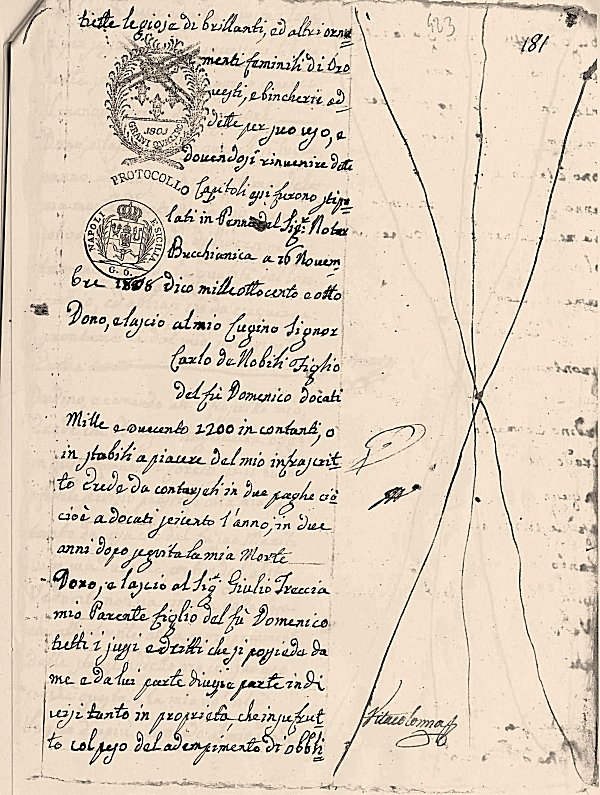 tutte le gioje di brillanti, ed altri orna
menti feminili di Oro
vesti, e bincherie ad
dette per suo uso, e
dovendosi rinvenire dette
Capitoli essi furono stipo
lati in Penne del Sig.r Notar
Bucchianica a 26 Novem
bre 1808 dico mille ottocento e otto
Dono, e lascio al mio Cugino Signor
Carlo de Nobili figlio
del fù Domenico docati
Mille e duecento 1200 in contanti, o
in stabili a piacere del mio infrascrit
to Erede da contarseli in due paghe cioè
cioè a docati seicento l'anno, in due
anni dopo seguita la mia Morte
Dono, e lascio al Sig.r Giulio Treccia
mio Parente figlio del fù Domenico
tutti i jussi e dritti che si possieda da
me e da lui parte divisi e parte indi
visi tanto in proprietà, che in usufrut
to col peso del adempimento di obbli
523
181
1801
GRANI QUATTRO
PROTOCOLLO
NAPOLI E SICILIA
G. O.